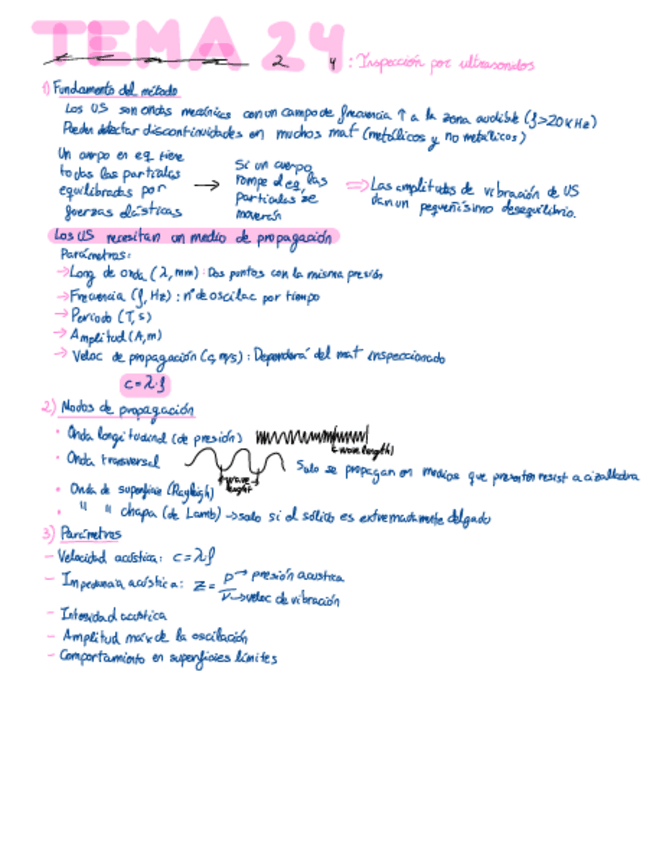 TEMA 24 : Inspección por ultrasonidos
1) Fundamento del método
Los US son ondas mecánicas con un campo de frecuencia ↑ a la zona audible (f>20KHz)
Pueden detectar discontinuidades en muchos mat (metálicos y no metálicos)
Un cuerpo en eq tiene
todas las partículas
equilibradas por
fuerzas elásticas
→
Si un cuerpo
rompe el eq, las
partículas se
moverán
⇒ Las amplitudes de vibración de US
dan un pequeñísimo desequilibrio.
Los US necesitan un medio de propagación
Parámetros:
→ Long de onda (λ, mm): Dos puntos con la misma presión
→ Frecuencia (f, Hz): nº de oscilac por tiempo
→ Periodo (T, s)
→ Amplitud (A, m)
→ Veloc de propagación (c, m/s): Dependerá del mat inspeccionado
c = λ·f
2) Modos de propagación
· Onda longitudinal (de presión)
wavelength
· Onda transversal
Solo se propagan en medios que presenten resist a cizalladura
wave
· Onda de superficie (Rayleigh)
· " " chapa (de Lamb) → solo si el sólido es extremadamente delgado
3) Parámetros
- Velocidad acústica: c = λf
- Impedancia acústica: Z = P/V
P → presión acústica
V → veloc de vibración
- Intensidad acústica
- Amplitud máx de la oscilación
- Comportamiento en superficies límites